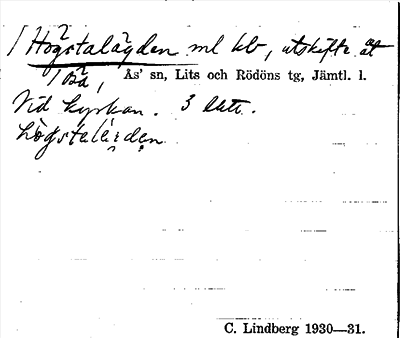 Högstalägden ml kb, utskifte åt
Bå,
Ås' sn, Lits och Rödöns tg, Jämtl. l.
Vid kyrkan. 3 lätt.
C. Lindberg 1930—31.